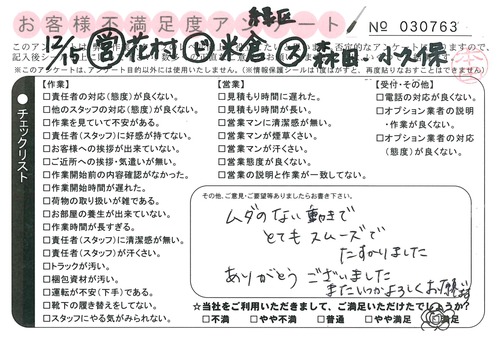 お客様不満足度アンケート
緑区
No 030763
12/15 営 花村 ド 米倉 ス 森田・小久保
記入後シール
※このアンケートは、アンケート目的以外には使用いたしません。(※情報保護シールは1度はがすと、再度貼りなおすことはできません)
チェックリスト
【作業】
□責任者の対応(態度)が良くない。
□他のスタッフの対応(態度)が良くない。
□作業を見ていて不安がある。
□責任者(スタッフ)に好感が持てない。
□お客様への挨拶が出来ていない。
□ご近所への挨拶・気遣いが無い。
□作業開始前の内容確認がなかった。
□作業開始時間が遅れた。
□荷物の取り扱いが雑である。
□お部屋の養生が出来ていない。
□作業時間が長すぎる。
□責任者(スタッフ)に清潔感が無い。
□責任者(スタッフ)が汗くさい。
□トラックが汚い。
□梱包資材が汚い。
□運転が不安(下手)である。
□靴下の履き替えをしてない。
□スタッフにやる気がみられない。
【営業】
□見積もり時間に遅れた。
□見積もり時間が長い。
□営業マンに清潔感が無い。
□営業マンが煙草くさい。
□営業マンが汗くさい。
□営業態度が良くない。
□営業の説明と作業が一致してない。
【受付・その他】
□電話の対応が良くない。
□オプション業者の説明
・作業が良くない。
□オプション業者の対応
(態度)が良くない。
その他、ご意見・ご要望等ありましたらお書き下さい。
ムダのない動きで
とてもスムーズで
たすかりました
ありがとうございました
またいつかよろしくお願います
☆当社をご利用いただきまして、ご満足いただけたでしょうか?
□不満 □やや不満 □普通 □やや満足 □満足